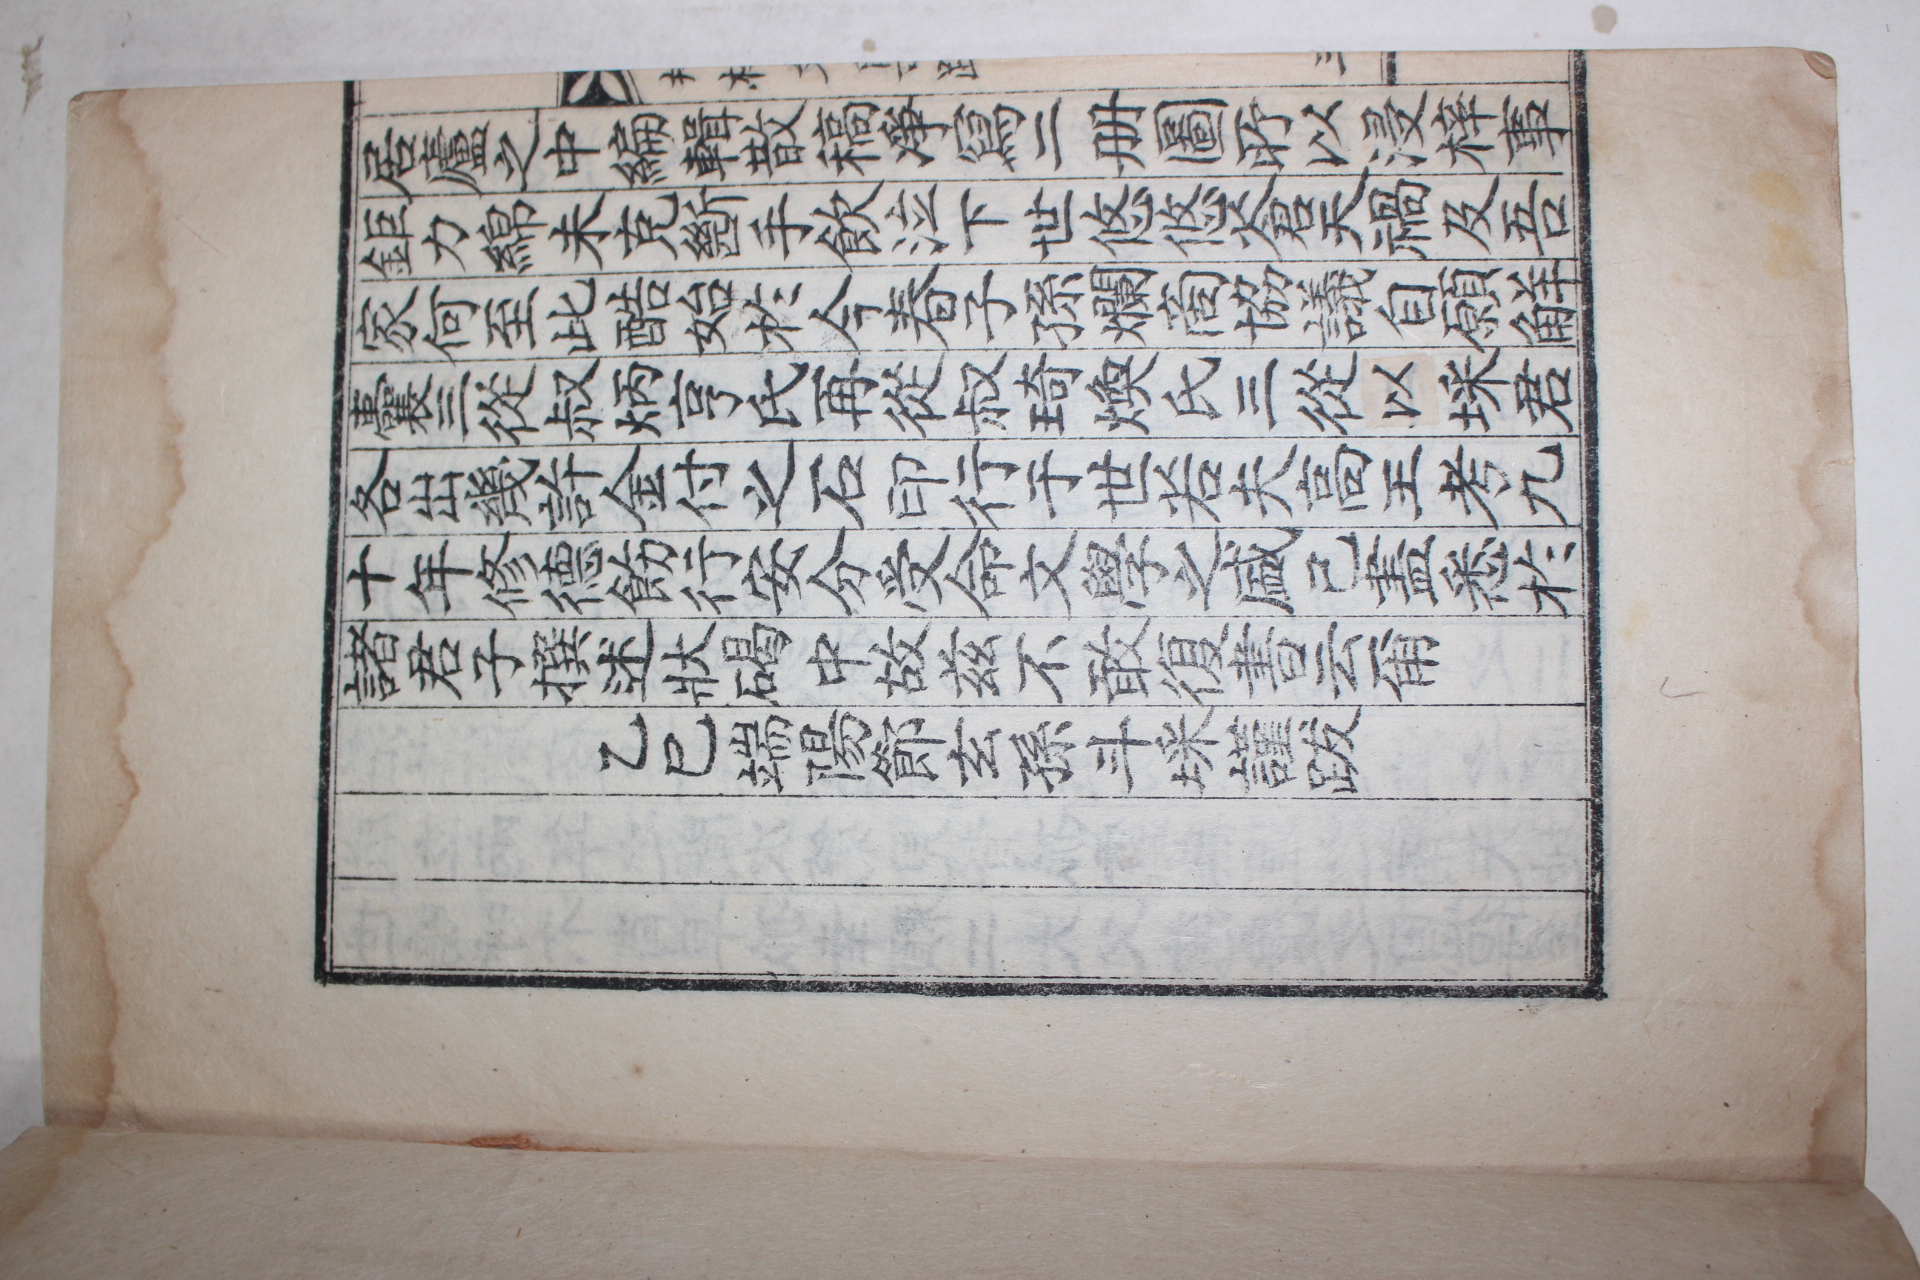 居廬之中編輯散稿淨寫二册圖所以浸梓事
鉅力綿未克斷手飮泣下世悠悠蒼天禍及吾
家何至此酷始於今春子孫爛商協議自願觧
囊三從叔炳亨氏再從叔琦煥氏三從以埰君
各出幾許金付之石印行于世若夫高王考九
十年修德飭行安分受命文學之盛已盡悉於
諸君子撰述狀碣中故玆不敢復書云爾
乙巳端陽節玄孫斗埰謹跋